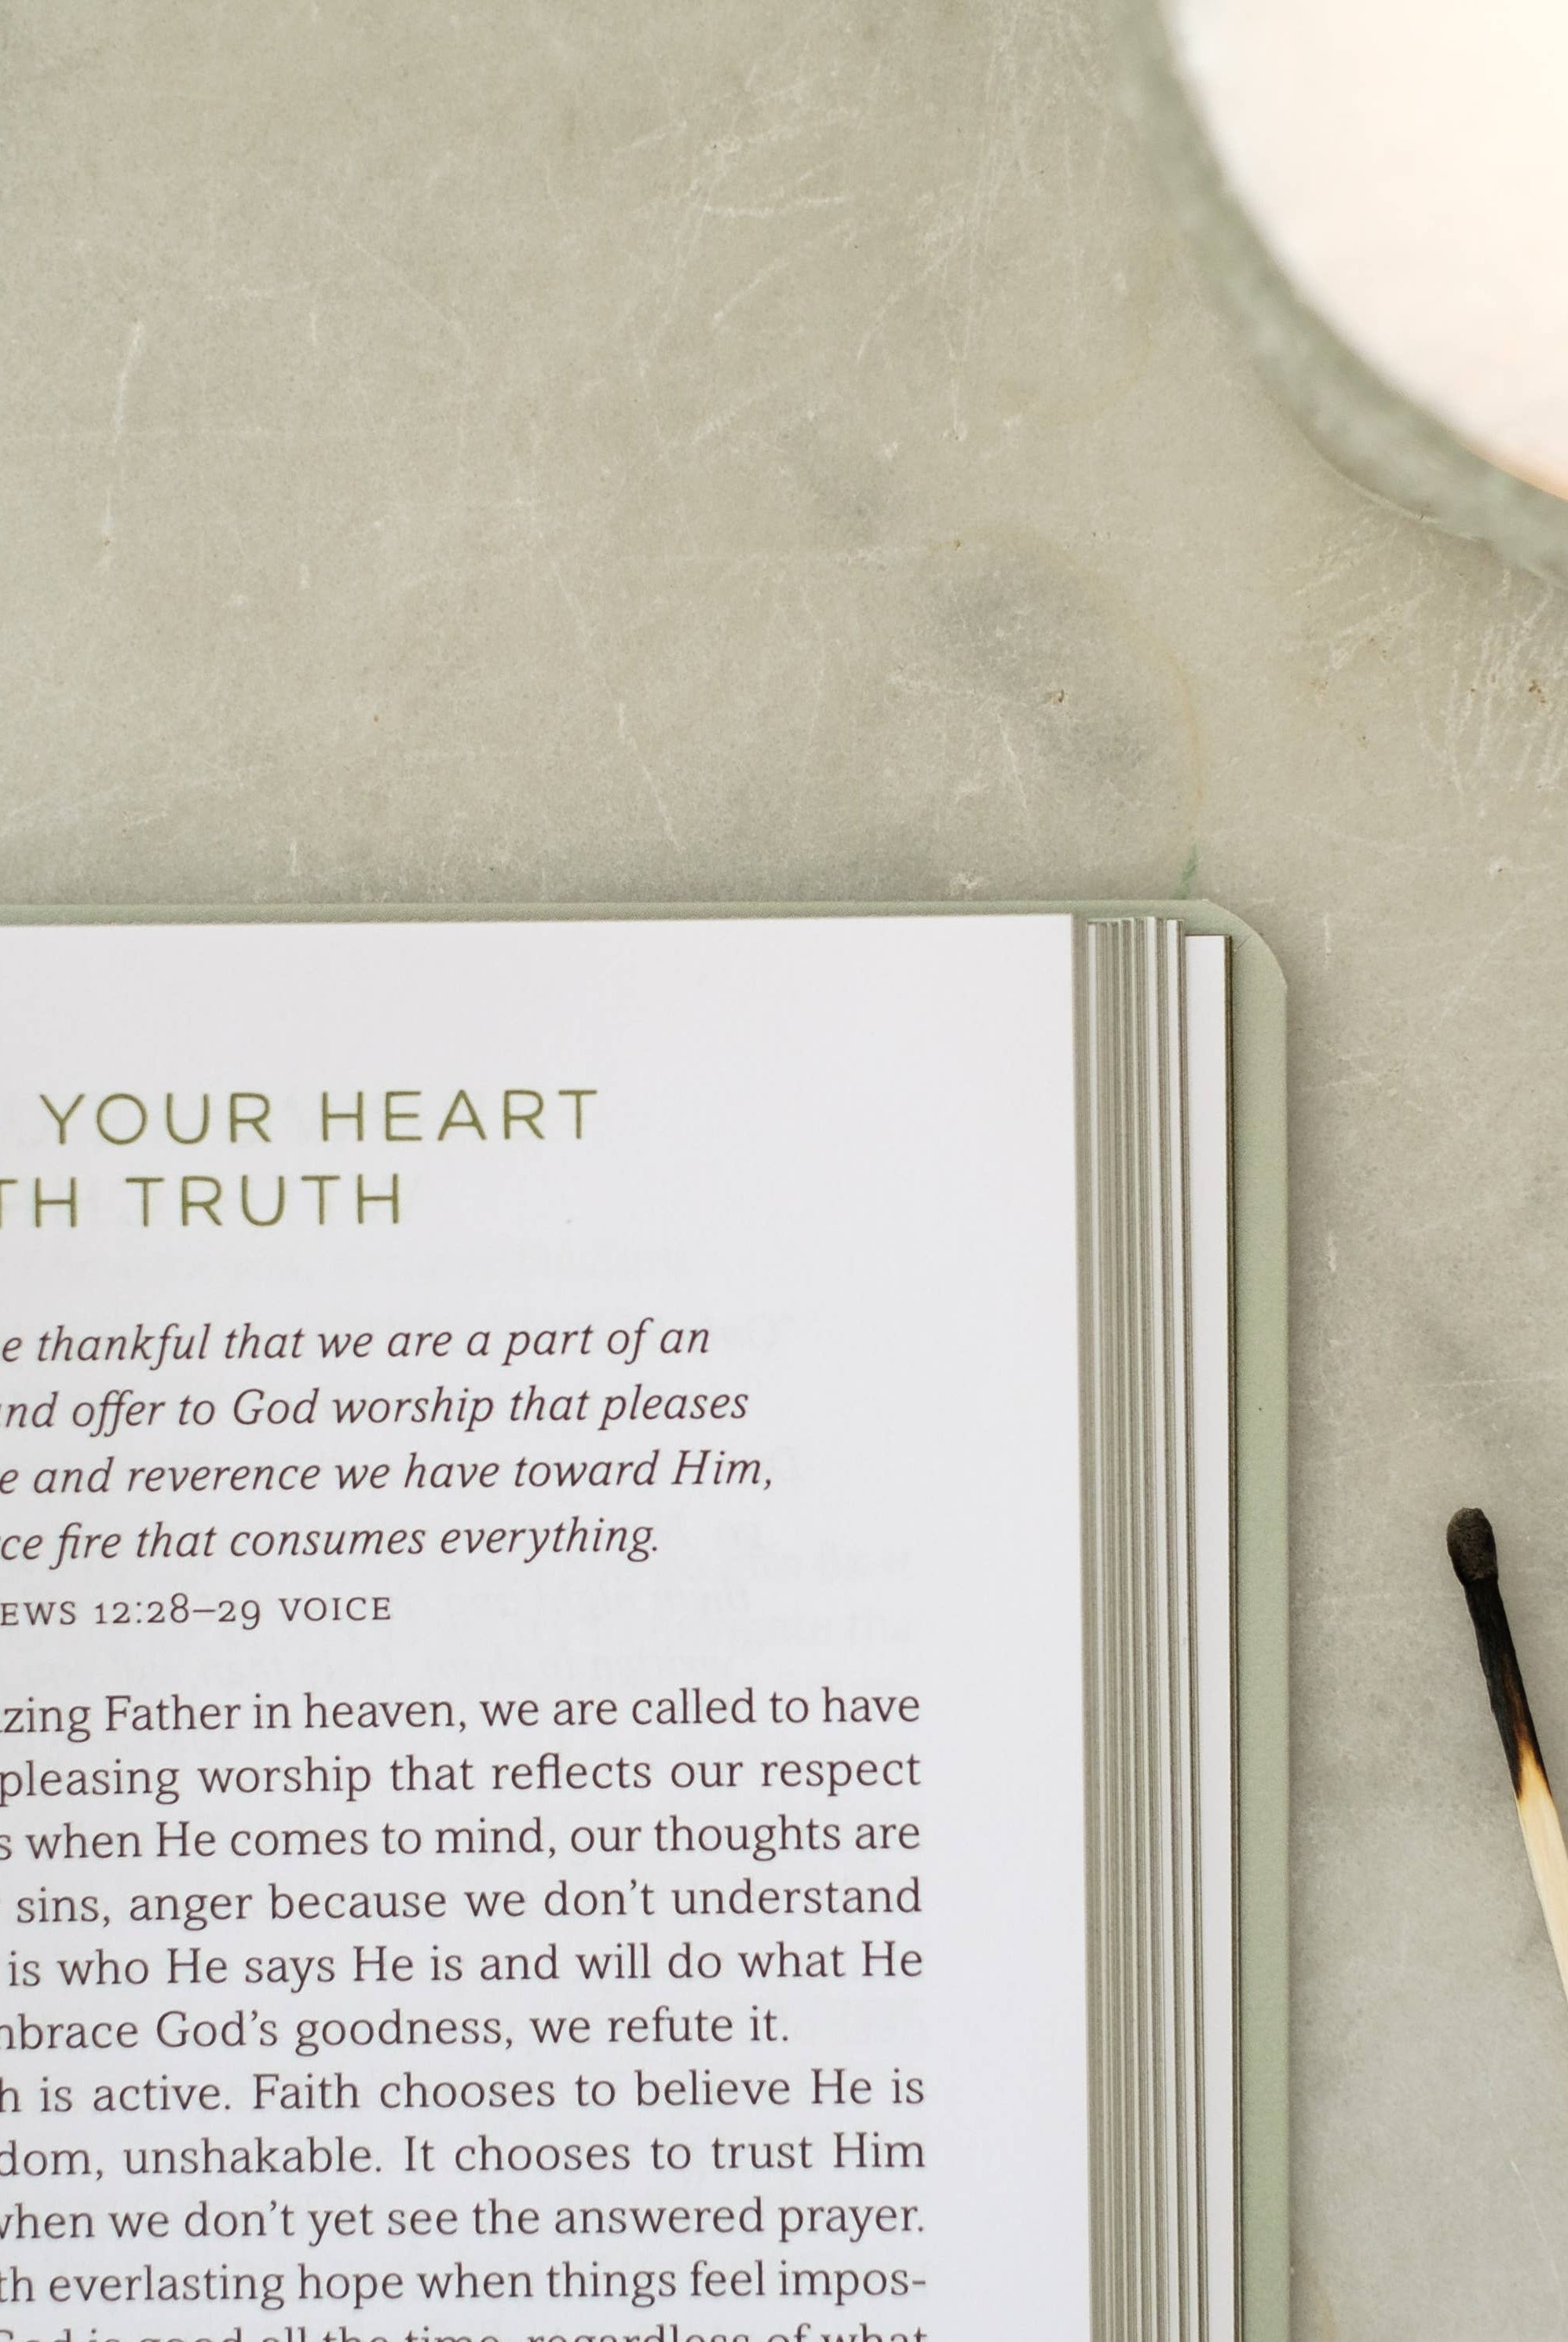 YOUR HEART
TRUTH
thankful that we are a part of an
offer to God worship that pleases
and reverence we have toward Him,
fire that consumes everything.
12:28–29 VOICE
Father in heaven, we are called to have
pleasing worship that reflects our respect
when He comes to mind, our thoughts are
sins, anger because we don’t understand
is who He says He is and will do what He
God’s goodness, we refute it.
is active. Faith chooses to believe He is
unshakable. It chooses to trust Him
when we don’t yet see the answered prayer.
everlasting hope when things feel impos-
God is good all the time, regardless of what